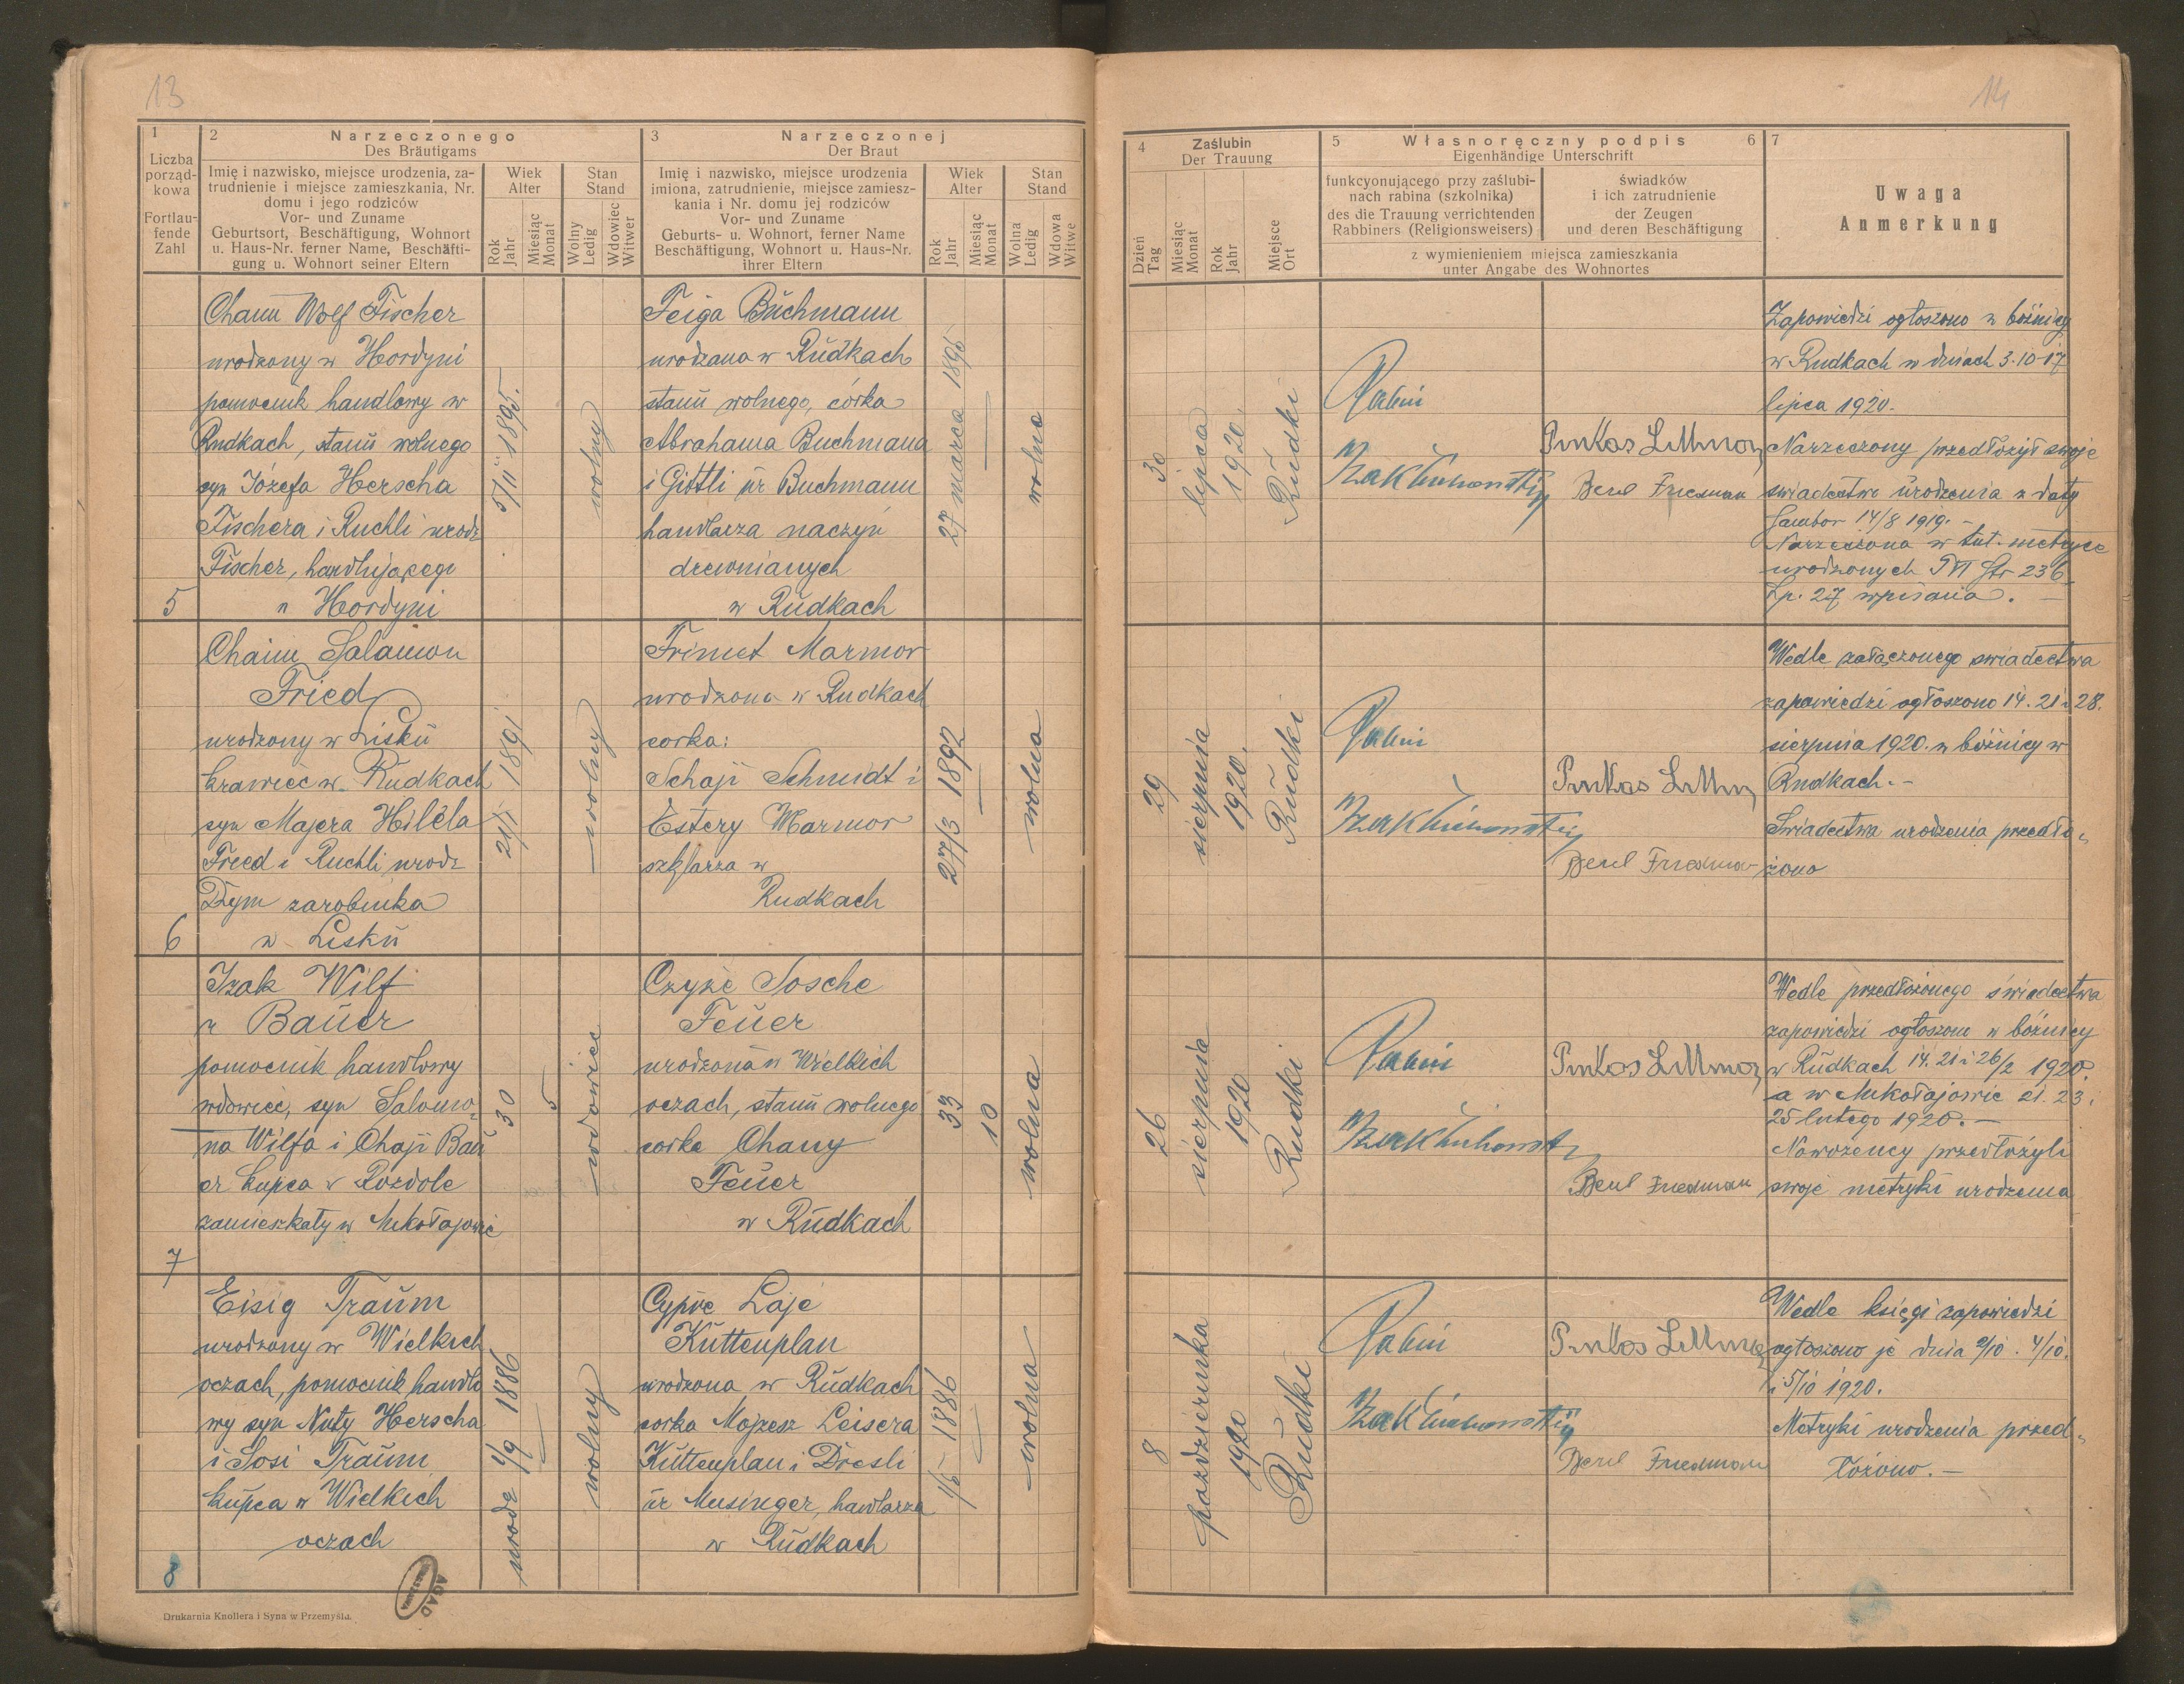 13
1
Liczba
porząd-
kowa
Fortlau-
fende
Zahl
2
Narzeczonego
Des Bräutigams
Imię i nazwisko, miejsce urodzenia, za-
trudnienie i miejsce zamieszkania, Nr.
domu i jego rodziców
Vor- und Zuname
Geburtsort, Beschäftigung, Wohnort
u. Haus-Nr. ferner Name, Beschäfti-
gung u. Wohnort seiner Eltern
Wiek
Alter
Rok
Jahr
Miesiąc
Monat
Stan
Stand
Wolny
Ledig
Wdowiec
Witwer
3
Narzeczonej
Der Braut
Imię i nazwisko, miejsce urodzenia
imiona, zatrudnienie, miejsce zamiesz-
kania i Nr. domu jej rodziców
Vor- und Zuname
Geburts- u. Wohnort, ferner Name
Beschäftigung, Wohnort u. Haus-Nr.
ihrer Eltern
Wiek
Alter
Rok
Jahr
Miesiąc
Monat
Stan
Stand
Wolna
Ledig
Wdowa
Witwe
Chaim Wolf Fischer
urodzony w Hordyni
pomocnik handlowy w
Rudkach, stanu wolnego
syn Józefa Herscha
Fischera i Ruchli urodz
Fischer, handlującego
w Hordyni
5
5/II 1895.
wolny
Feiga Buchmann
urodzana w Rudkach
stanu wolnego, córka
Abrahama Buchmana
i Gittli ur Buchmann
handlarza naczyń
drewnianych
w Rudkach
27 marca 1896
wolna
Chaim Salamon
Fried
urodzony w Lisku
krawiec w Rudkach
syn Majera Hiléla
Fried i Ruchli urodz
Dym zarobnika
w Lisku
6
21/I 1891
wolny
Frimet Marmor
urodzona w Rudkach
corka:
Schaji Schmidt i
Estery Marmor
szklarza w
Rudkach
27/3 1892
wolna
Izak Wilf
r Bauer
pomocnik handlowy
wdowiec, syn Salomo-
na Wilfa i Chaji Bau
er kupca w Rozdole
zamieszkaty w Mikołajowie
7
30
5
wdowiec
Czyze Sosche
Feuer
urodzona w Wielkich
oczach, stanu wolnego
corka Chany
Feuer
w Rudkach
33
10
wolna
Eisig Traum
urodzony w Wielkich
oczach, pomocnik handlo
wy syn Nuty Herscha
i Sosi Traum
kupca w Wielkich
oczach
8
urodz 1/9 1886
wolny
Cypre Laje
Kuttenplan
urodzona w Rudkach
corka Mojzesz Leisera
Kuttenplan i Dresli
ur Musinger, handlarza
w Rudkach
1/5 1886
wolna
Drukarnia Knollera i Syna w Przemyślu.
AGAD
14
4
Zaślubin
Der Trauung
Dzień
Tag
Miesiąc
Monat
Rok
Jahr
Miejsce
Ort
5
Własnoręczny podpis
6
Eigenhändige Unterschrift
funkcyonującego przy zaślubi-
nach rabina (szkolnika)
des die Trauung verrichtenden
Rabbiners (Religionsweisers)
świadków
i ich zatrudnienie
der Zeugen
und deren Beschäftigung
z wymienieniem miejsca zamieszkania
unter Angabe des Wohnortes
7
Uwaga
Anmerkung
30
lipca
1920
Rudki
Rabin
Berel Friedman
Zapowiedzi ogłoszono w bóżnicy
w Rudkach w dniach 3. 10. 17
lipca 1920.
Narzeczony przedłożył swoje
swiadectwo urodzenia z daty
Sambor 14/8 1919. -
Narzeczona w tut. metryce
urodzonych T VI Str 236
Lp. 27 wpisana. -
29
sierpnia
1920.
Rudki
Rabin
Berel Friedman
Wedle załączonego swiadectwa
zapowiedzi ogłoszono 14. 21 i 28.
sierpnia 1920. w bóżnicy w
Rudkach. -
Swiadectwa urodzenia przedło-
żono
26
sierpnia
1920
Rudki
Rabin
Berel Friedman
Wedle przedłożonego świadectwa
zapowiedzi ogłoszono w bóżnicy
w Rudkach 14. 21 i 26/2 1920.
a w Mikołajowie 21. 23 i
25 lutego 1920. -
Nowożency przedłożyli
swoje metryki urodzenia
8
pazdziernika
1920
Rudki
Rabin
Berel Friedman
Wedle księgi zapowiedzi
ogłoszono je dnia 2/10. 4/10.
i 5/10 1920.
Metryki urodzenia przed-
łożono. -